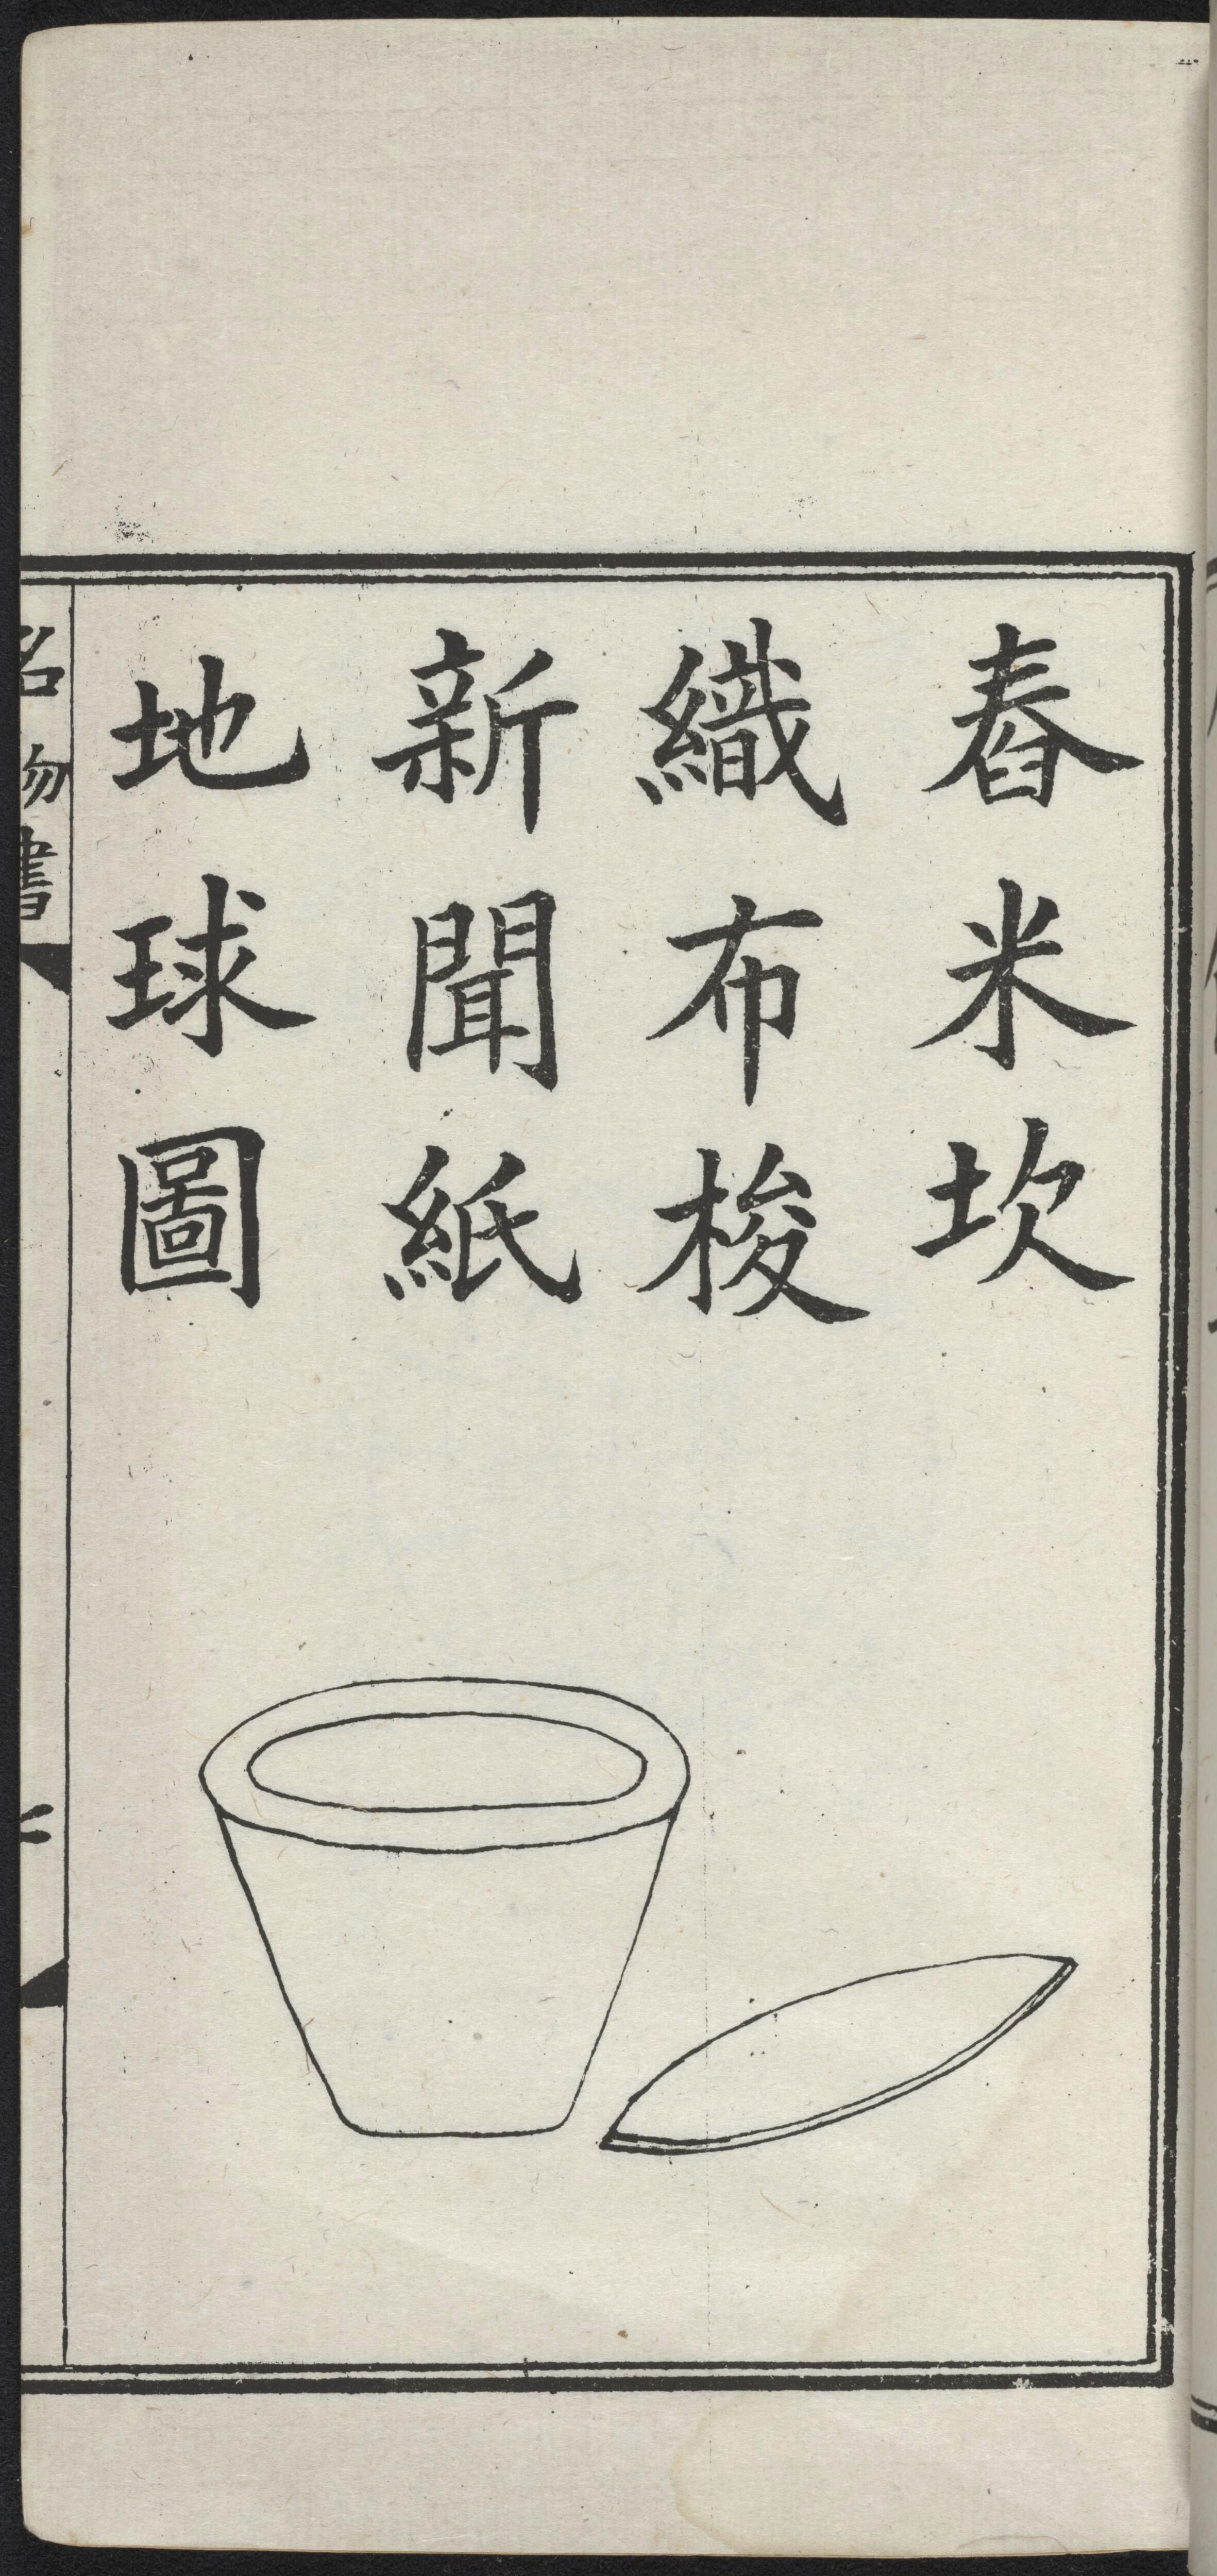 舂米坎
織布梭
新聞紙
地球圖
名物書